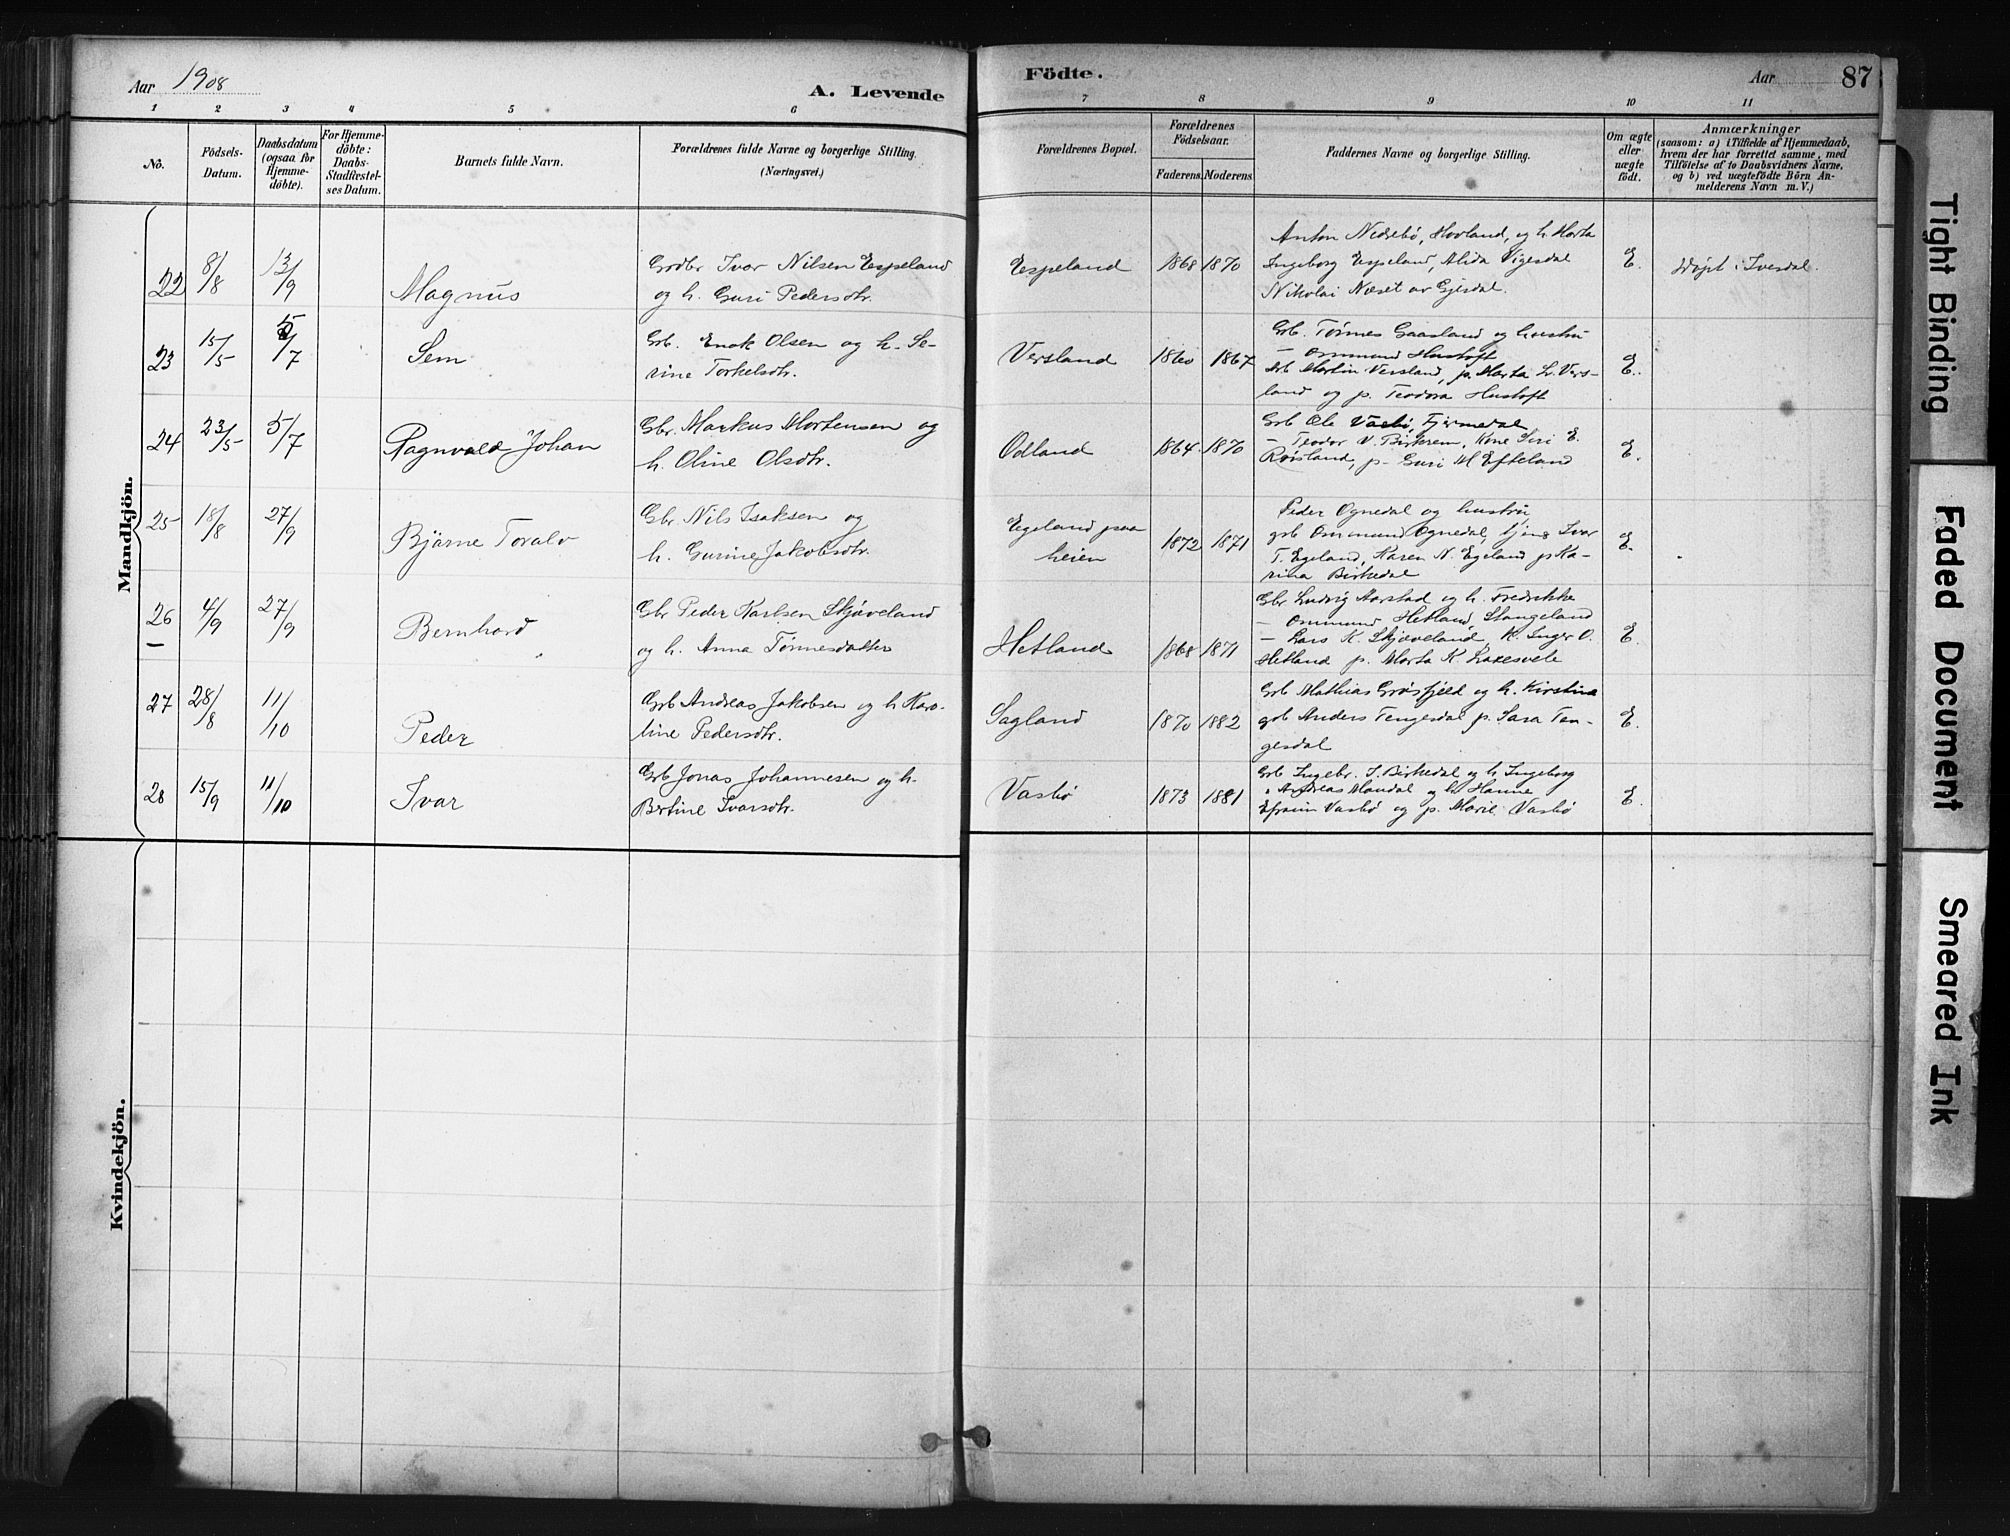 Aar 1908
A. Levende
Födte.
Aar
87
1 2 3 4 5 6 7 8 9 10 11
No.
Födsels-
Datum.
Daabsdatum
(ogsaa for
Hjemme-
döbte).
For Hjemme-
döbte:
Daabs-
Stadfæstel-
ses Datum.
Barnets fulde Navn.
Forældrenes fulde Navne og borgerlige Stilling.
(Næringsvei.)
Forældrenes Bopæl.
Forældrenes
Födselsaar.
Faderens. Moderens.
Faddernes Navne og borgerlige Stilling.
Om ægte
eller
uægte
födt.
Anmærkninger
(saasom: a) i Tilfælde af Hjemmedaab,
hvem der har forrettet samme, med
Tilföielse af to Daabsvidners Navne,
og b) ved uægtefödte Börn An-
melderens Navn m. V.)
Mandkjön.
22 8/8 13/9 Magnus
Grdbr Ivar Nilsen Espeland
og h. Guri Pedersdtr.
Espeland 1868 1870
Anton Nedrebö, Hovland, og h. Marta
Ingeborg Espeland, Alida Vigesdal
Nikolai Næset av Gjesdal.
E.
döpt i Ivesdal.
23 15/5 5/7 Sem
Grb. Enok Olsen og h. Se-
rine Torkelsdtr.
Versland 1860 1867
Grb. Tönnes Gaasland og hustru
— Ommund Hustoft
Grb Martin Versland, p. Marta L. Vers-
land og p. Teodora Hustoft
E.
24 23/5 5/7 Ragnvald Johan
Gbr. Markus Mortensen og
h. Oline Olsdtr.
Odland 1864 1870
Grb Ole Vasbö, Fjermedal
— Teodor V. Birkrem, Kone Siri E.
Röisland, p. Guri M Efteland
E.
25 18/8 27/9 Bjärne Toralv
Gbr Nils Isaksen og
h. Gurine Jakobsdtr.
Egeland paa
heien
1872 1871
Peder Ognedal og hustru
grb Ommund Ognedal, tjens Ivar
T. Egeland, Karen N. Egeland p Ka-
rina Birkedal
E.
26 4/9 27/9 Bernhard
Gbr Peder Karlsen Skjæveland
og h. Anna Tönnesdatter
Hetland 1868 1871
Gbr Ludvig Aarstad og h. Fredrikke
— Ommund Hetland, Stangeland
— Lars K. Skjæveland, K. Inger O.
Hetland p. Marta K. Laxesvele
E.
27 28/8 11/10 Peder
Grb Andreas Jakobsen og h Karo-
line Pedersdtr.
Sagland 1870 1882
Grb Mathias Grösfjeld og h. Kirstine
grb Anders Tengesdal p. Sara Ten-
gesdal
E.
28 15/9 11/10 Ivar
Grb Jonas Johannesen og h.
Bertine Ivarsdtr.
Vasbö 1873 1881
Grb Ingebr. I. Birkedal og h Ingeborg
" Andreas Mandal og h Hanne
Efraim Vasbö og p. Marie Vasbö
E.
Kvindekjön.
Tight Binding
Faded Document
Smeared Ink